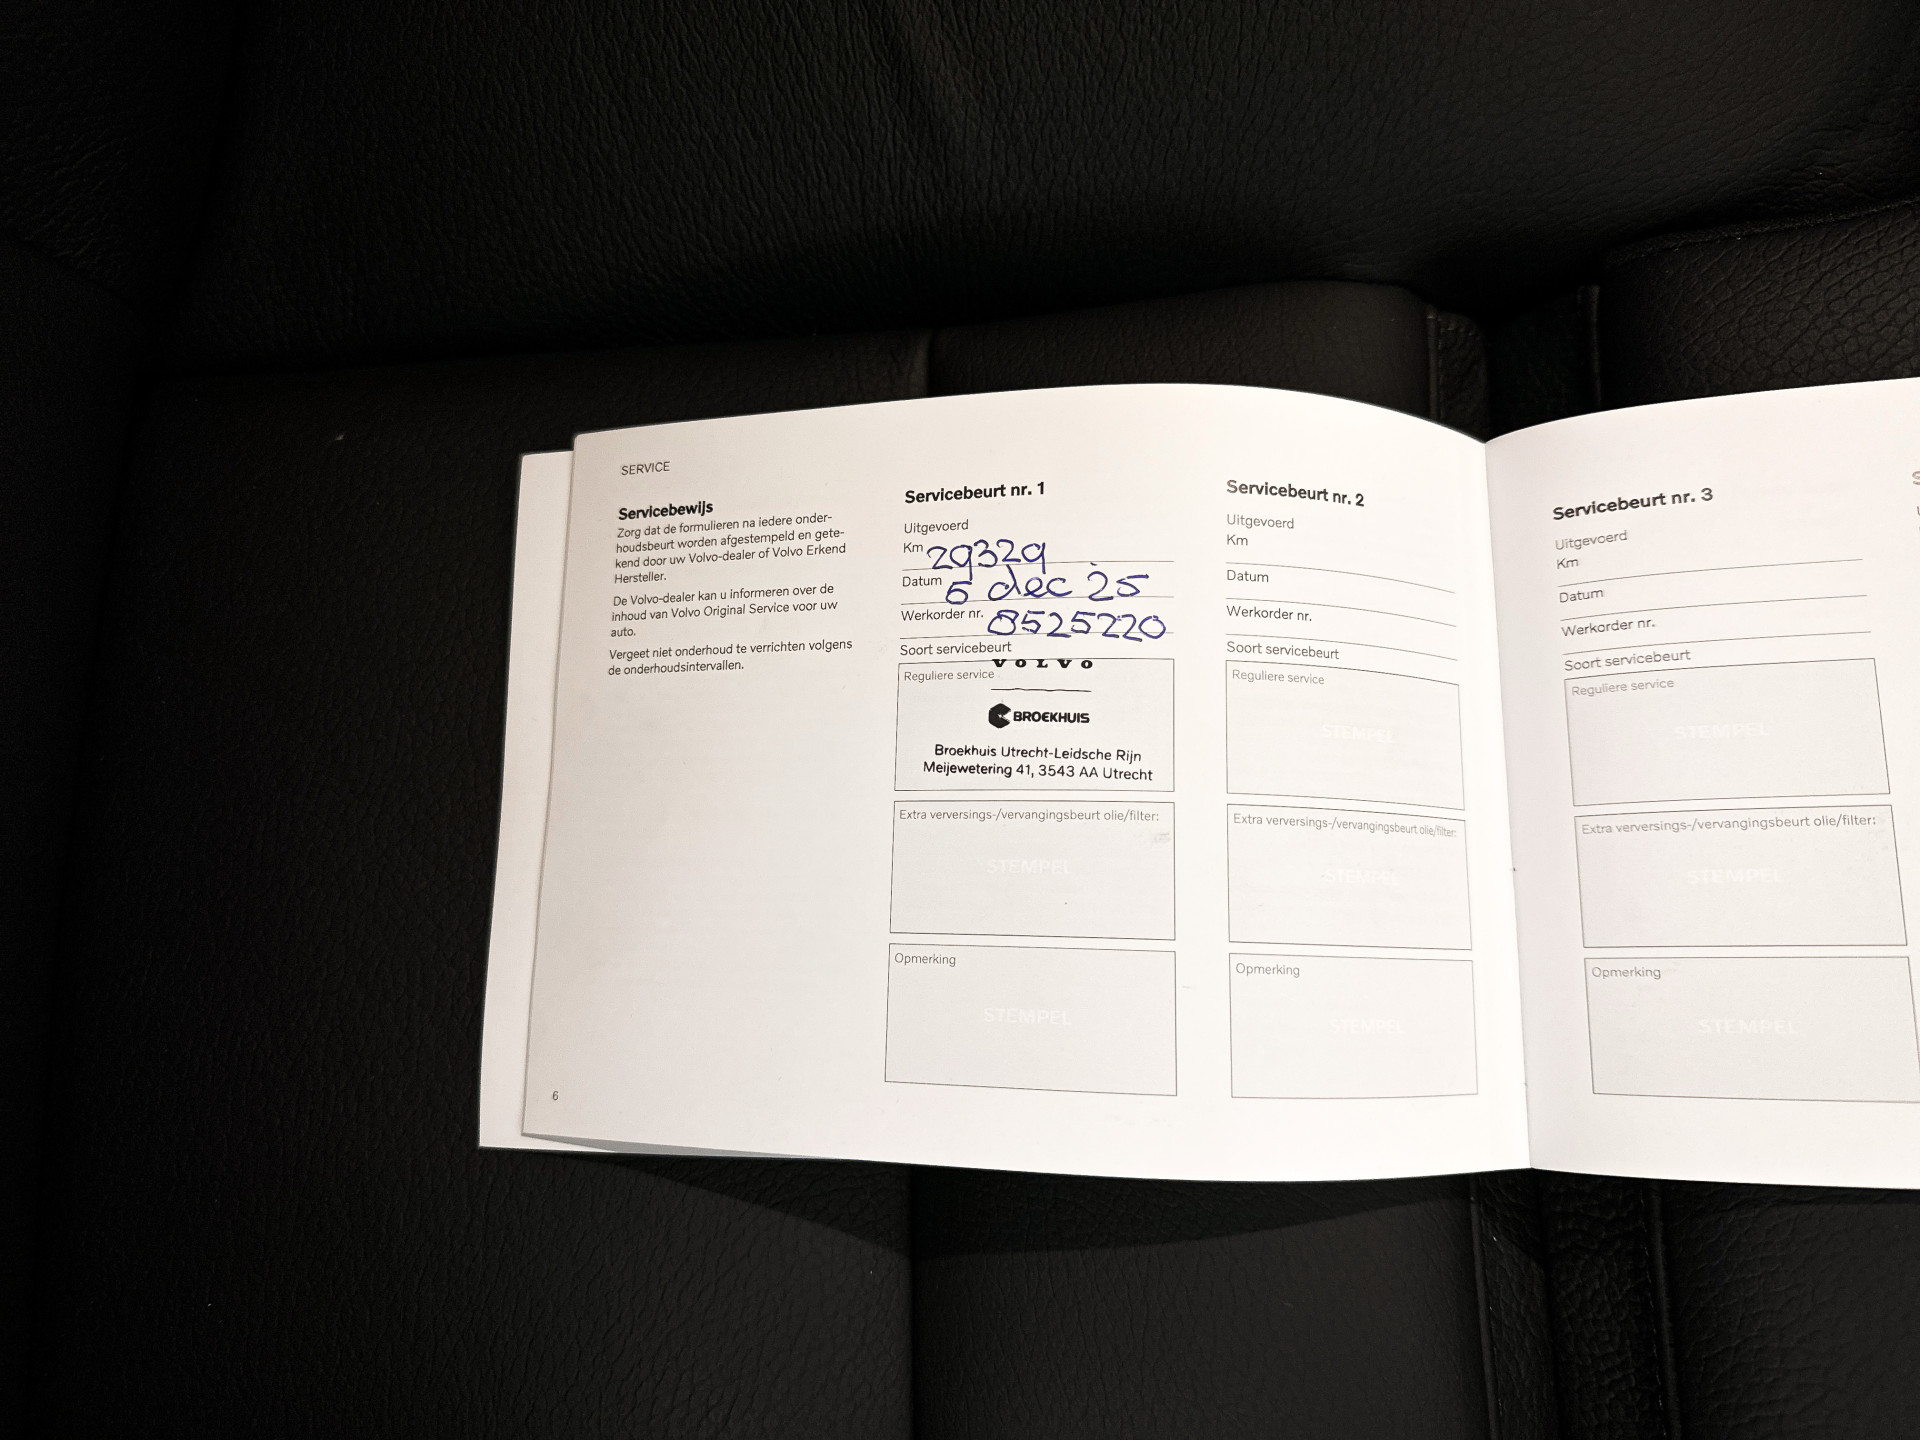 SERVICE
Servicebewijs
Zorg dat de formulieren na iedere onder-
houdsbeurt worden afgestempeld en gete-
kend door uw Volvo-dealer of Volvo Erkend
Hersteller.
De Volvo-dealer kan u informeren over de
inhoud van Volvo Original Service voor uw
auto.
Vergeet niet onderhoud te verrichten volgens
de onderhoudsintervallen.
6
Servicebeurt nr. 1
Uitgevoerd
Km 29329
Datum 5 dec 25
Werkorder nr. 8525220
Soort servicebeurt
VOLVO
Reguliere service
BROEKHUIS
Broekhuis Utrecht-Leidsche Rijn
Meijewetering 41, 3543 AA Utrecht
Extra verversings-/vervangingsbeurt olie/filter:
STEMPEL
Opmerking
STEMPEL
Servicebeurt nr. 2
Uitgevoerd
Km
Datum
Werkorder nr.
Soort servicebeurt
Reguliere service
STEMPEL
Extra verversings-/vervangingsbeurt olie/filter:
STEMPEL
Opmerking
STEMPEL
Servicebeurt nr. 3
Uitgevoerd
Km
Datum
Werkorder nr.
Soort servicebeurt
Reguliere service
STEMPEL
Extra verversings-/vervangingsbeurt olie/filter:
STEMPEL
Opmerking
STEMPEL